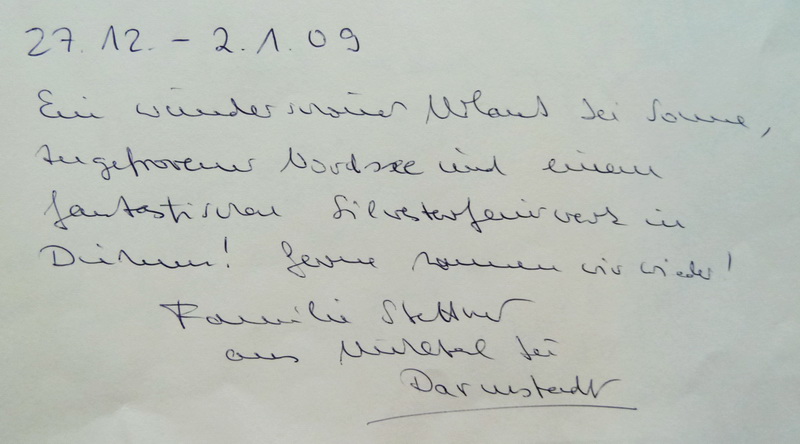 27.12. – 2.1.09
Ein wunderschöner Urlaub bei Sonne,
zugefrorener Nordsee und einem
fantastischen Silvesterfeuerwerk in
! Gerne kommen wir wieder!
Familie Stettner
aus Mühltal bei
Darmstadt